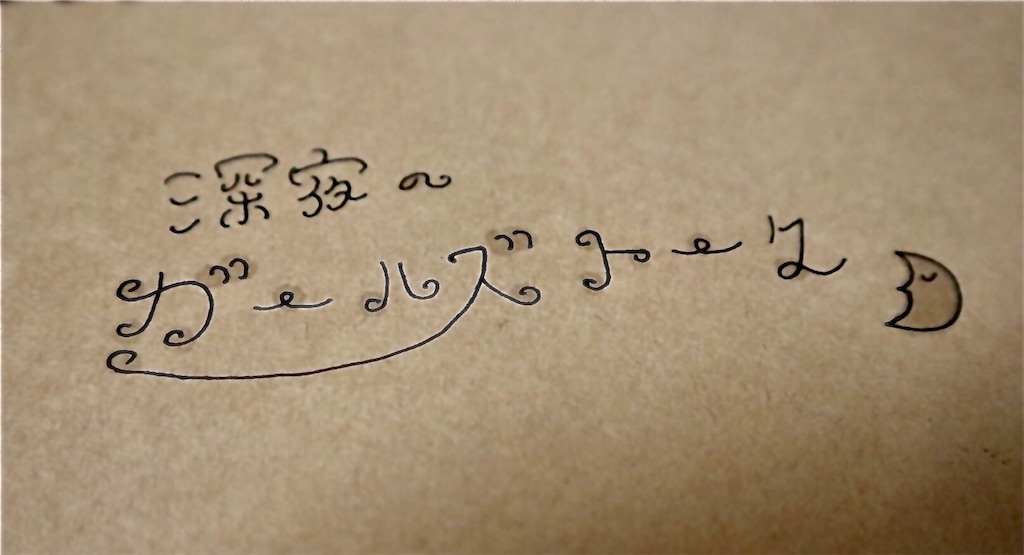 深夜の
ガールズトーク